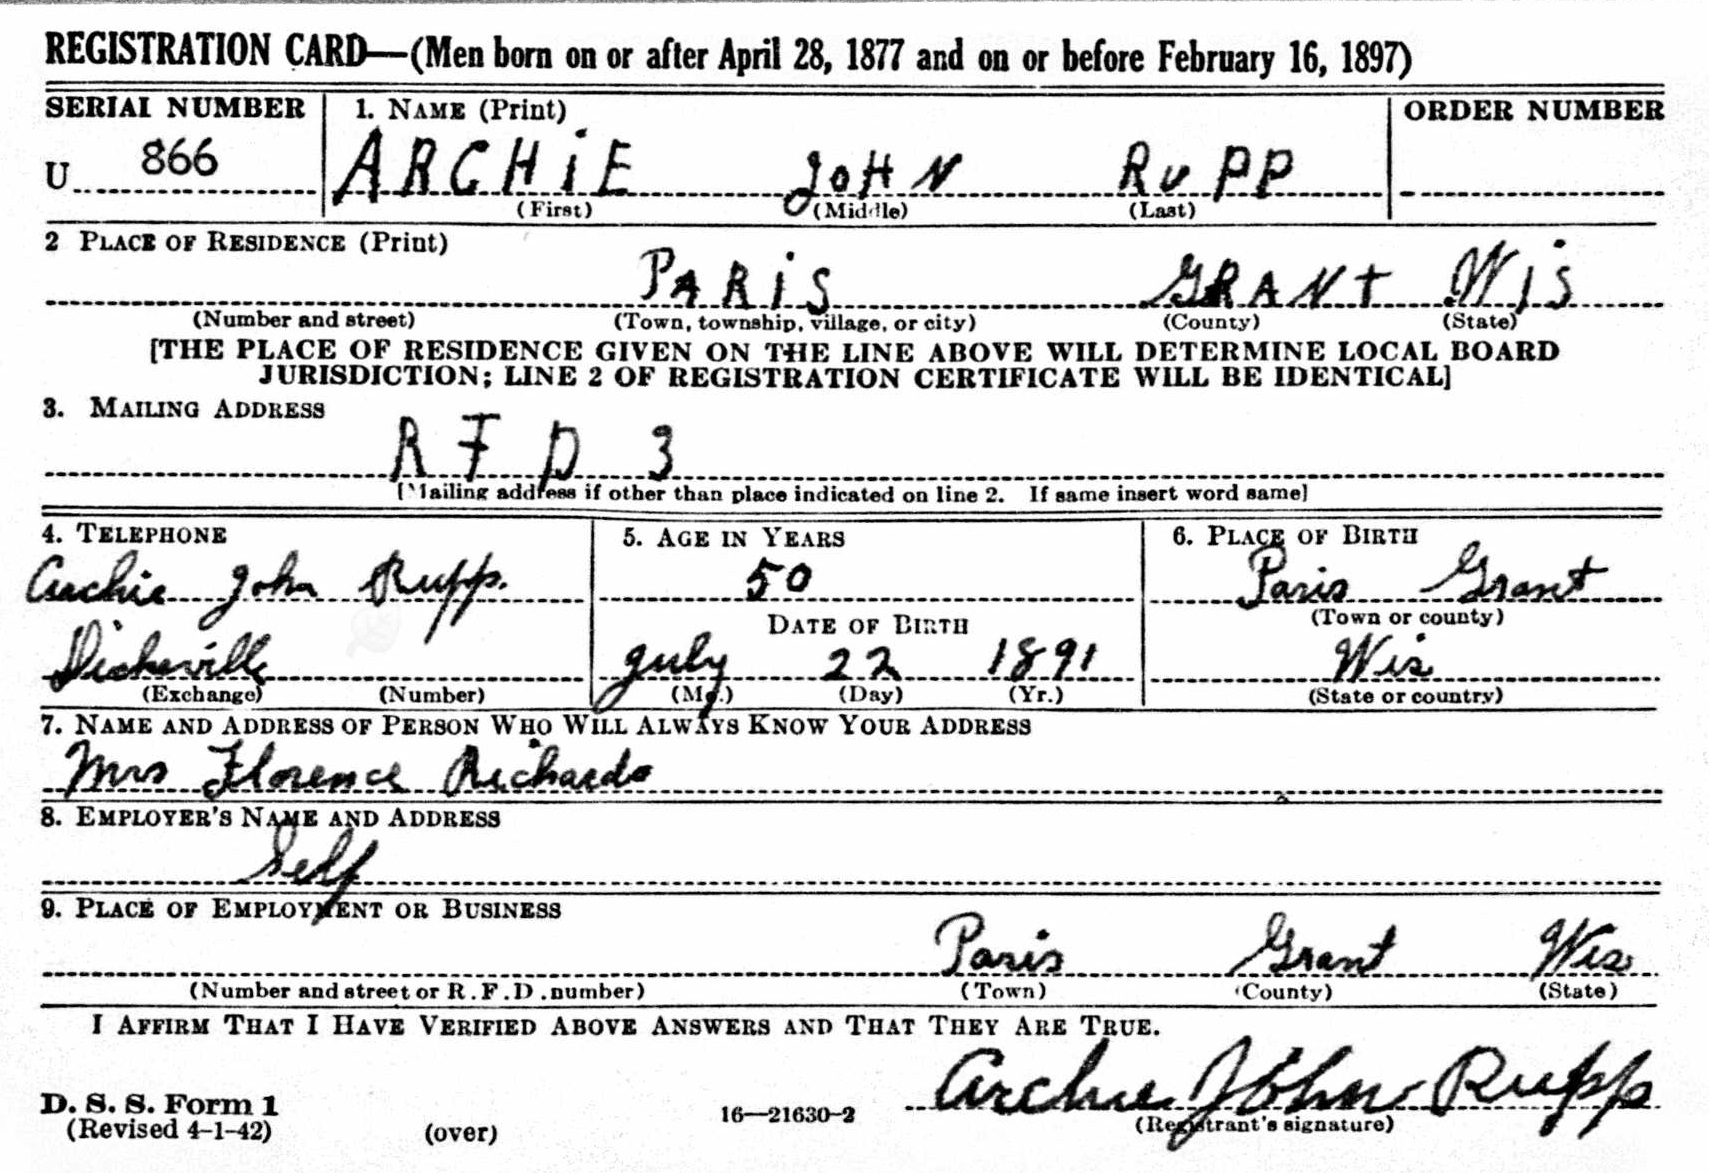 REGISTRATION CARD—(Men born on or after April 28, 1877 and on or before February 16, 1897)
SERIAL NUMBER 1. NAME (Print) ORDER NUMBER
U 866 ARCHiE JOHN RUPP
(First) (Middle) (Last)
2 PLACE OF RESIDENCE (Print)
PARiS GRANT WiS
(Number and street) (Town, township, village, or city) (County) (State)
[THE PLACE OF RESIDENCE GIVEN ON THE LINE ABOVE WILL DETERMINE LOCAL BOARD
JURISDICTION; LINE 2 OF REGISTRATION CERTIFICATE WILL BE IDENTICAL]
3. MAILING ADDRESS
R F D 3
[Mailing address if other than place indicated on line 2. If same insert word same]
4. TELEPHONE 5. AGE IN YEARS 6. PLACE OF BIRTH
Archie John Rupp. 50 Paris Grant
DATE OF BIRTH (Town or county)
Dickeville July 22 1891 Wis
(Exchange) (Number) (Mo.) (Day) (Yr.) (State or country)
7. NAME AND ADDRESS OF PERSON WHO WILL ALWAYS KNOW YOUR ADDRESS
Mrs Florence Richards
8. EMPLOYER'S NAME AND ADDRESS
Self
9. PLACE OF EMPLOYMENT OR BUSINESS
Paris Grant Wis
(Number and street or R.F.D. number) (Town) (County) (State)
I AFFIRM THAT I HAVE VERIFIED ABOVE ANSWERS AND THAT THEY ARE TRUE.
Archie John Rupp
D. S. S. Form 1
(Revised 4-1-42) (over) 16—21630-2 (Registrant's signature)